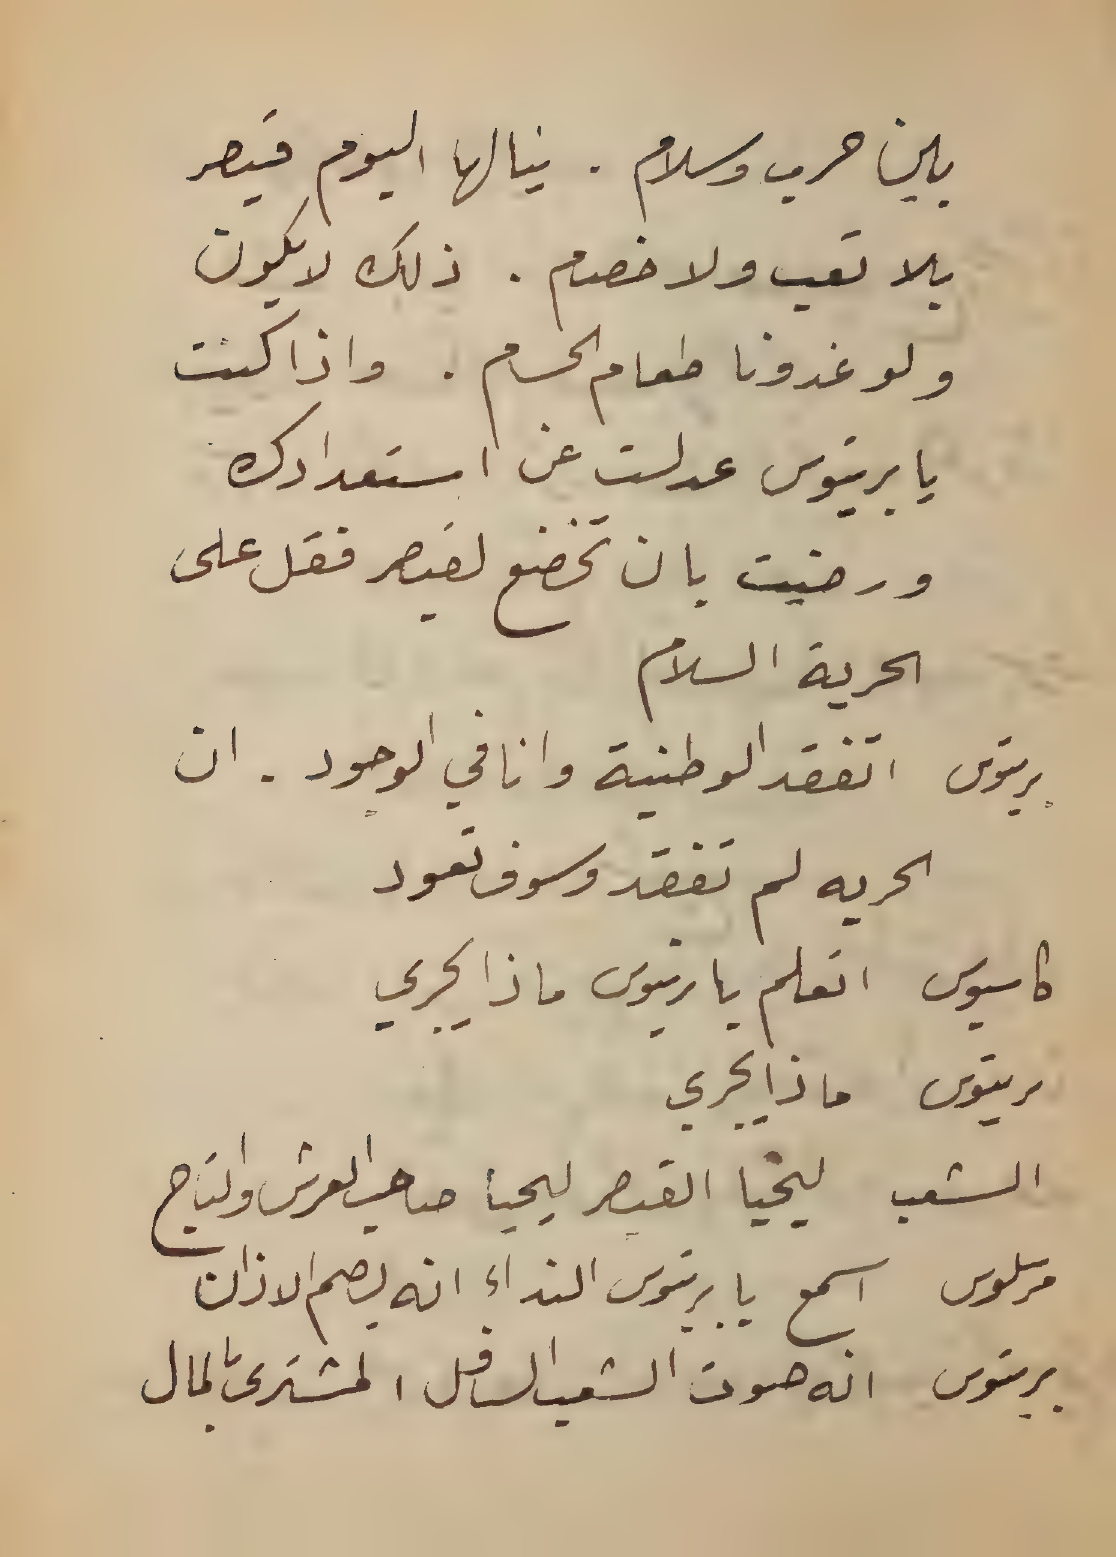 بين حرب وسلام . ينالها اليوم قيصر
بلا تعب ولا خصام . ذلك لا يكون
ولو غدونا طعام الحسام . واذا كنت
يا بريتوس عدلت عن استعدادك
ورضيت بان تخضع لقيصر فقل على
الحرية السلام
بريتوس اتفقد الوطنية وانا في الوجود . ان
الحريه لم تفقد وسوف تعود
كاسيوس اتعلم يا بريتوس ماذا يجري
بريتوس ماذا يجري
الشعب ليحيا القيصر ليحيا صاحب العرش والتاج
مرسلوس اسمع يا بريتوس النداء انه يصم الاذان
بريتوس انه صوت الشعب السافل المشترى بالمال